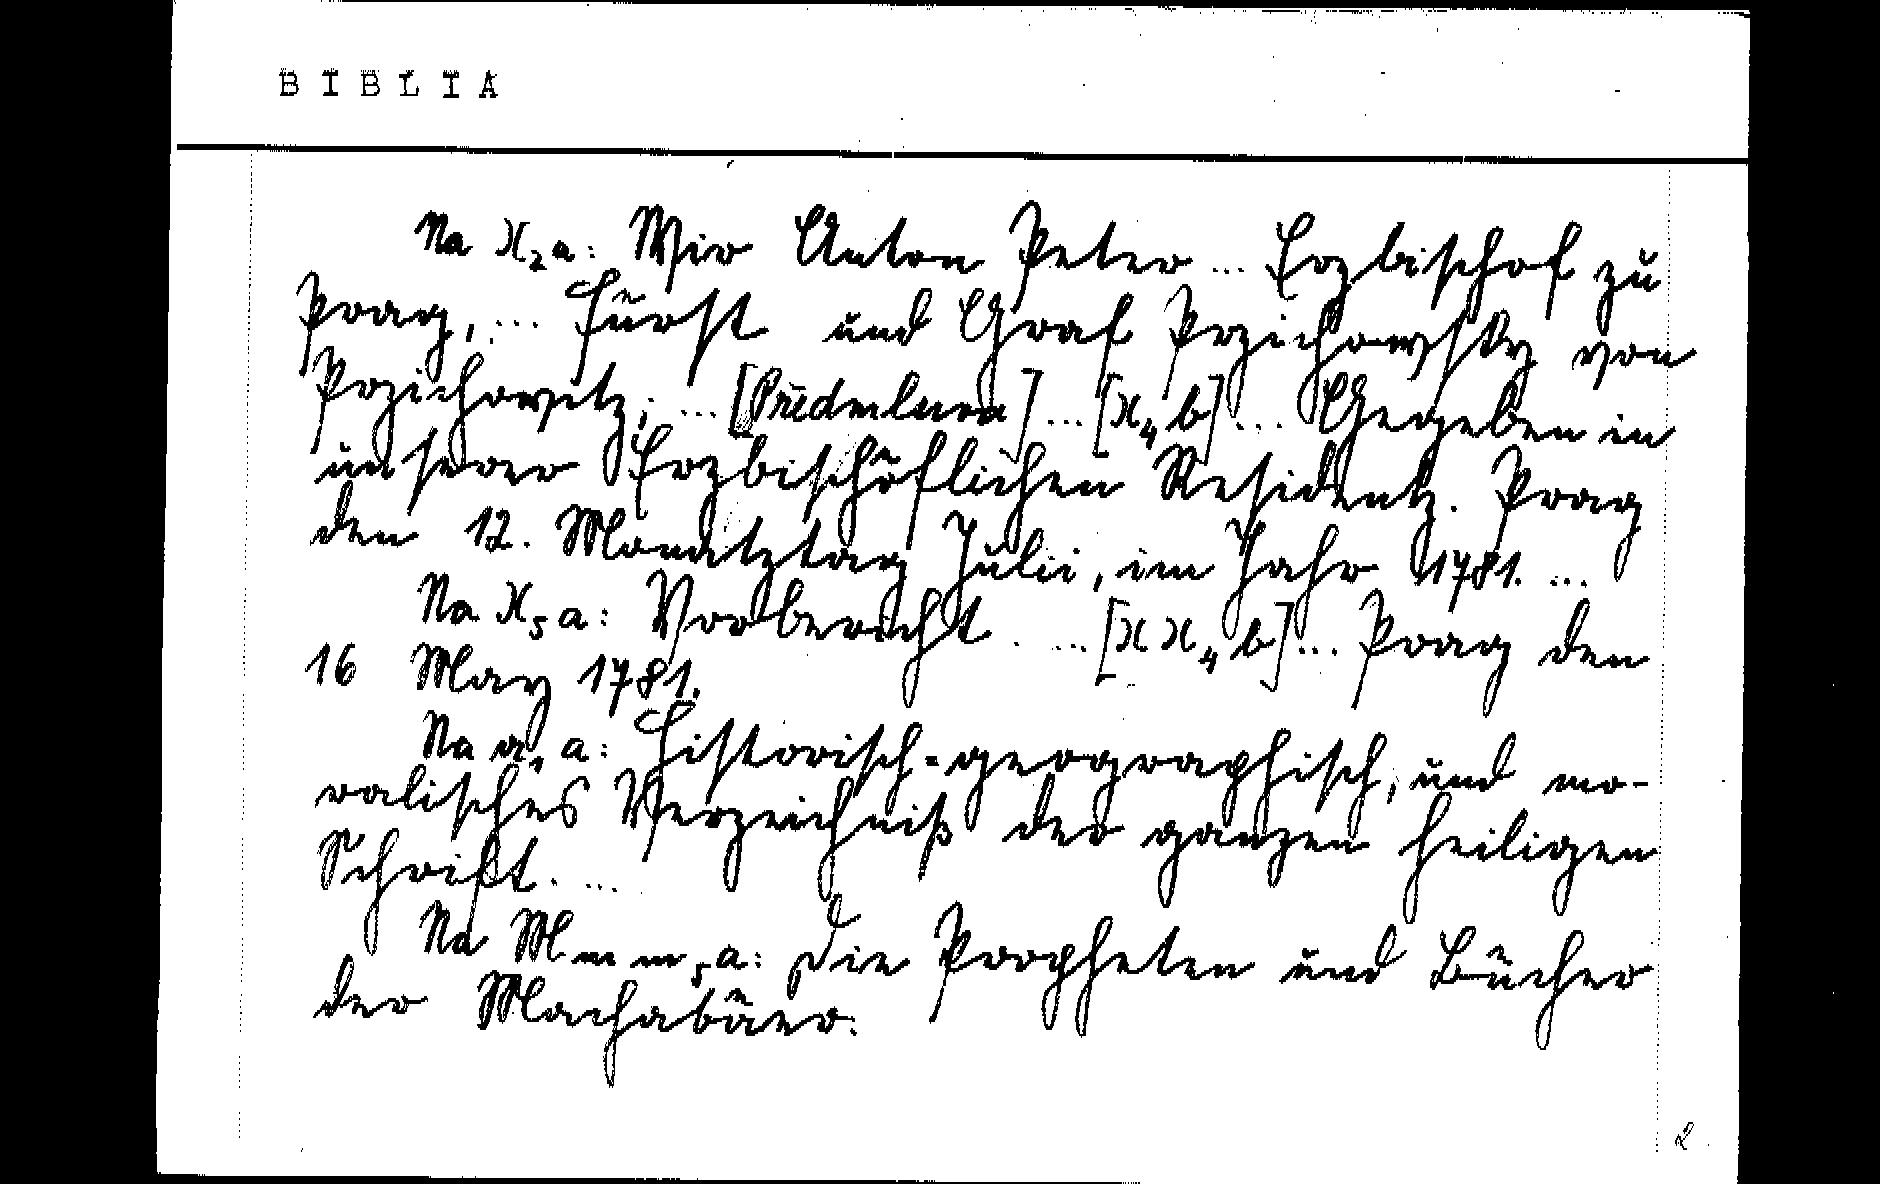 BIBLIA
Na χ₂a: Wir Anton Peter ... Erzbischof zu
Prag, ... Fürst und Graf Przichowsky von
Przichowitz; ... [Předmluva] ... [χ₄b] ... Gegeben in
unserer Erzbischöflichen Residentz. Prag
den 12. Monatztag Julii, im Jahr 1781. ...
Na χ₅a: Vorbericht. ... [χχ₄b] ... Prag den
16 May 1781.
Na a₁a: Historisch-geographisch, und mo-
ralisches Verzeichniß der ganzen heiligen
Schrift. ...
Na Mmm₅a: Die Propheten und Bücher
der Machabäer.
2